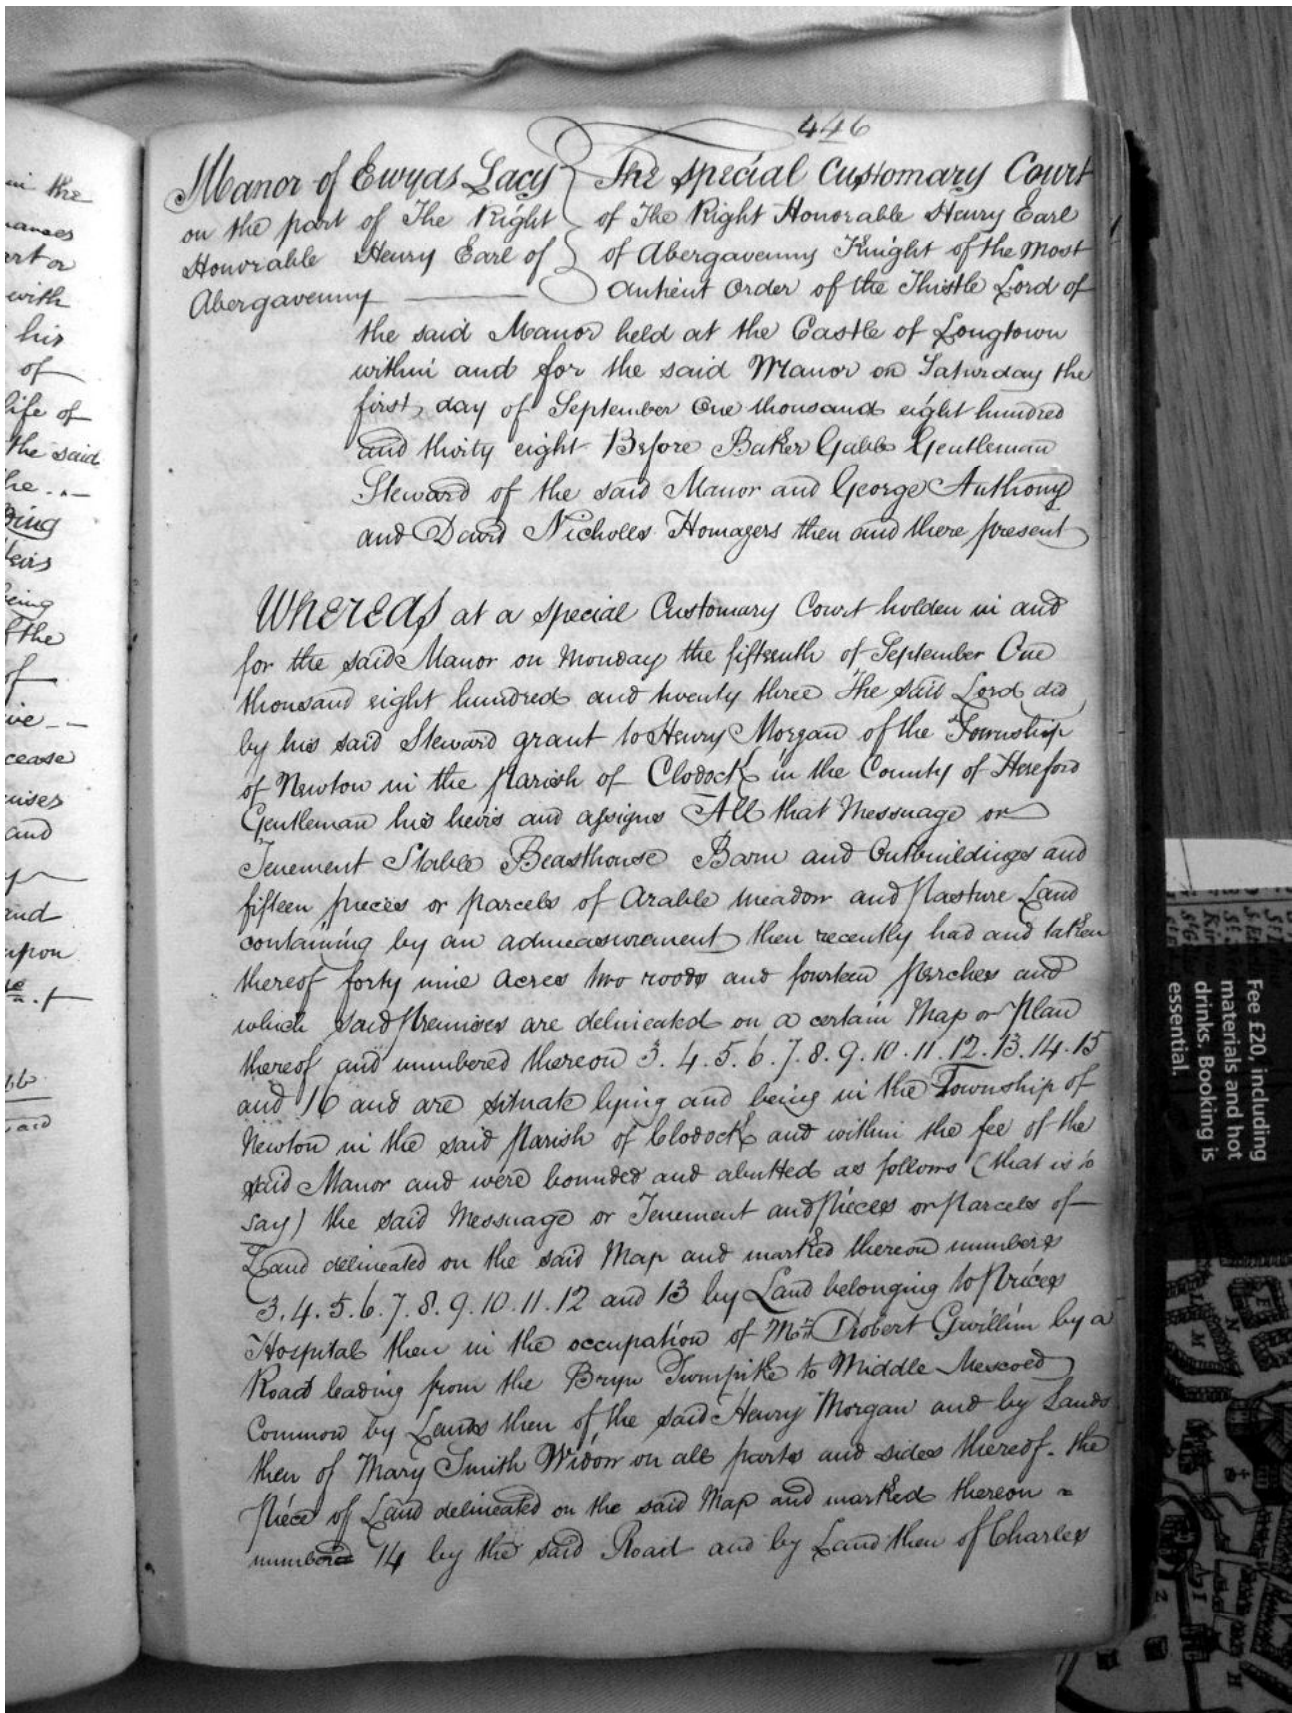 446
Manor of Ewyas Lacy
on the part of The Right
Honorable Henry Earl of
Abergavenny
The special Customary Court
of The Right Honorable Henry Earl
of Abergavenny Knight of the Most
Antient Order of the Thistle Lord of
the said Manor held at the Castle of Longtown
within and for the said Manor on Saturday the
first day of September One thousand eight hundred
and thirty eight Before Baker Gabb Gentleman
Steward of the said Manor and George Anthony
and David Nicholls Homagers then and there present
Whereas at a special Customary Court holden in and
for the said Manor on Monday the fifteenth of September One
thousand eight hundred and twenty three The said Lord did
by his said Steward grant to Henry Morgan of the Township
of Newton in the Parish of Clodock in the County of Hereford
Gentleman his heirs and assigns All that Messuage or
Tenement Stable Beasthouse Barn and Outbuildings and
fifteen pieces or parcels of Arable meadow and Pasture Land
containing by an admeasurement then recently had and taken
thereof forty nine acres two roods and fourteen perches and
which said Premises are delineated on a certain Map or Plan
thereof and numbered thereon 3. 4. 5. 6. 7. 8. 9. 10. 11. 12. 13. 14. 15
and 16 and are situate lying and being in the Township of
Newton in the said Parish of Clodock and within the fee of the
said Manor and were bounded and abutted as follows (that is to
say) the said Messuage or Tenement and Pieces or Parcels of
Land delineated on the said Map and marked thereon numbers
3. 4. 5. 6. 7. 8. 9. 10. 11. 12 and 13 by Land belonging to Prices
Hospital then in the occupation of Mr Probert Gwillim by a
Road leading from the Bryn Turnpike to Middle Mescoed
Common by Lands then of the said Henry Morgan and by Lands
then of Mary Smith Widow on all parts and sides thereof. the
Piece of Land delineated on the said Map and marked thereon
number 14 by the said Road and by Land then of Charles
in the
with
his
of
life of
the said
the
of
cease
and
and
upon
Fee £20, including
materials and hot
drinks. Booking is
essential.